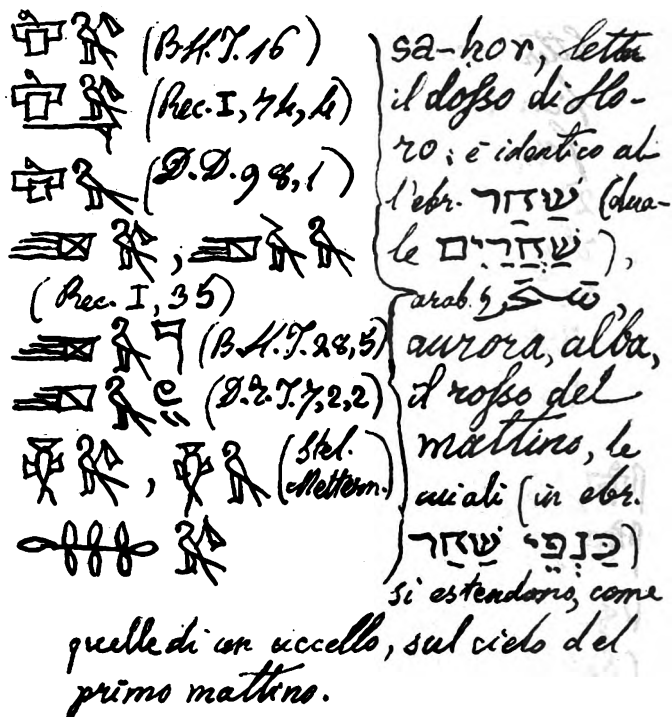 (B.H.J. 16)
(Rec. I, 74, 4)
(D.D. 98, 1)
,
(Rec. I, 35)
(B.H.J. 28, 5)
(D.T.J. 7, 2, 2)
, (Stel.
Mettern.)
sa-ḥor, lett.
il dosso di Ho-
ro; è identico al
l'ebr. שַׁחַר (dua-
le שַׁחֲרַיִם),
arab.
aurora, alba,
il rosso del
mattino, le
cui ali (in ebr.
כַּנְפֵי שַׁחַר)
si estendono, come
quelle di un uccello, sul cielo del
primo mattino.